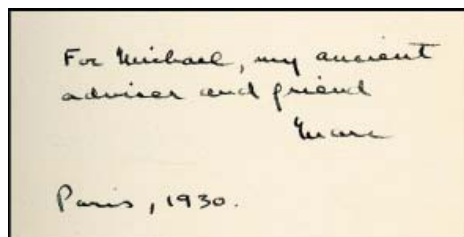 For Michael, my ancient
adviser and friend
Marc
Paris, 1930.